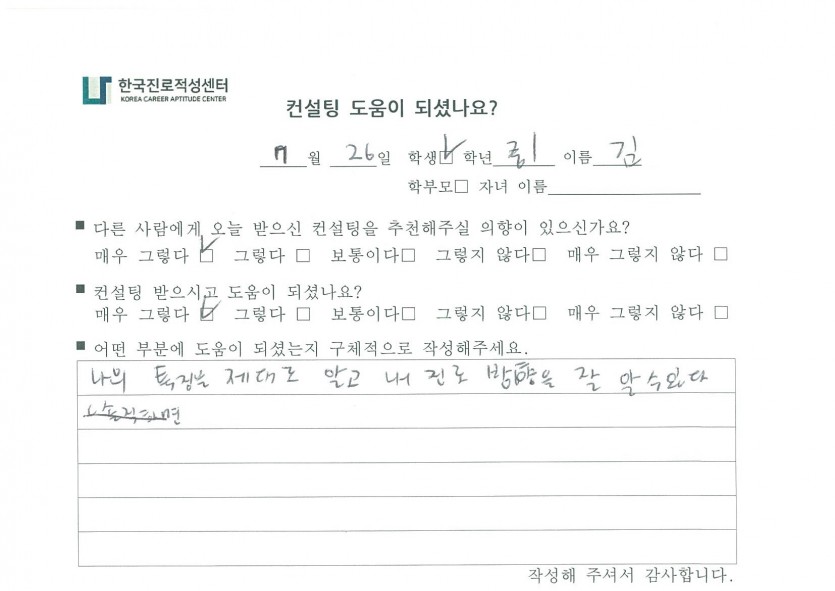 한국진로적성센터
KOREA CAREER APTITUDE CENTER
컨설팅 도움이 되셨나요?
7 월 26 일 학생☑ 학년 이름 김
학부모□ 자녀 이름
■ 다른 사람에게 오늘 받으신 컨설팅을 추천해주실 의향이 있으신가요?
매우 그렇다 ☑ 그렇다 □ 보통이다□ 그렇지 않다□ 매우 그렇지 않다 □
■ 컨설팅 받으시고 도움이 되셨나요?
매우 그렇다 ☑ 그렇다 □ 보통이다□ 그렇지 않다□ 매우 그렇지 않다 □
■ 어떤 부분에 도움이 되셨는지 구체적으로 작성해주세요.
나의 특징을 제대로 알고 내 진로 방향을 잘 알 수있다
작성해 주셔서 감사합니다.